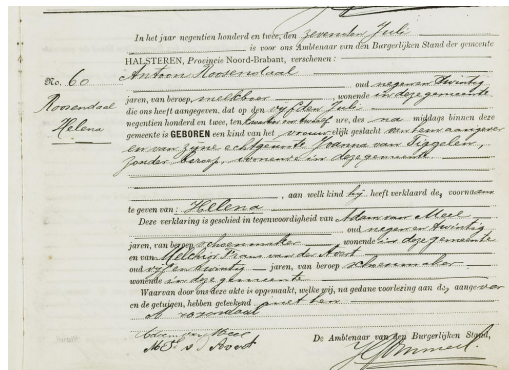 In het jaar negentien honderd en twee, den zevenden Juli
is voor ons Ambtenaar van den Burgerlijken Stand der gemeente
HALSTEREN, Provincie Noord-Brabant, verschenen:
No. 60
Antoon Roosendaal
Roosendaal
Helena
oud negen en twintig
jaren, van beroep, melkboer, wonende in deze gemeente
die ons heeft aangegeven, dat op den vijfden Juli
negentien honderd en twee, ten kwartier over twaalf ure, des na middags binnen deze
gemeente is GEBOREN een kind van het vrouwelijk geslacht van hem aangever
en van zijne echtgenoote Joanna van Tiggelen,
zonder beroep, wonende in deze gemeente
, aan welk kind hij heeft verklaard de, voornaam
te geven van: Helena
Deze verklaring is geschied in tegenwoordigheid van Adam van Meel
oud negen en twintig
jaren, van beroep schoenmaker wonende in deze gemeente
en van Melchijs Frans van der Avort
oud vijf en twintig jaren, van beroep schoenmaker
wonende in deze gemeente
Waarvan door ons deze akte is opgemaakt, welke wij, na gedane voorlezing aan de, aangever
en de getuigen, hebben geteekend met hen
a b rozendaal
Adam van Meel
De Ambtenaar van den Burgerlijken Stand,